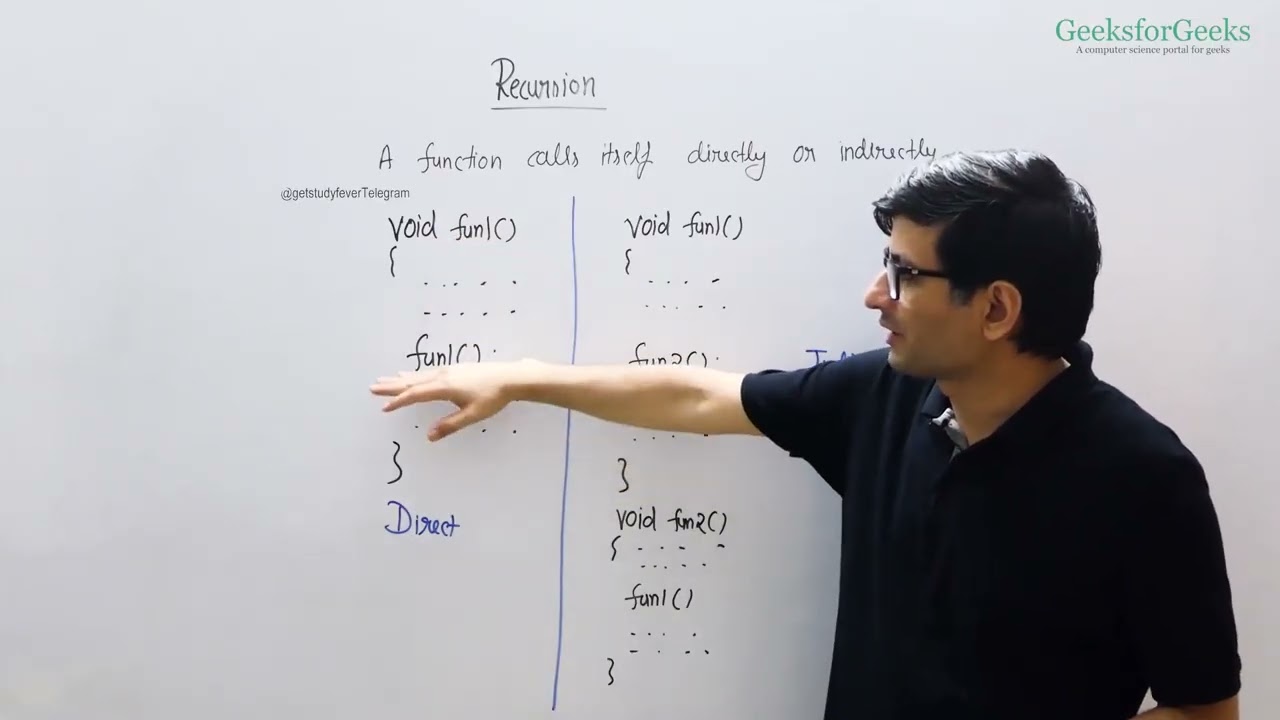 GeeksforGeeks
A computer science portal for geeks
Recursion
A function calls itself directly or indirectly
@getstudyfeverTelegram
void fun1()
{
. . . . .
- . . . .
fun1();
}
Direct
void fun1()
{
. . . -
. . . . .
fun2();
}
void fun2()
{ . . . -
. . . . .
fun1()
. . . .
- . . .
}